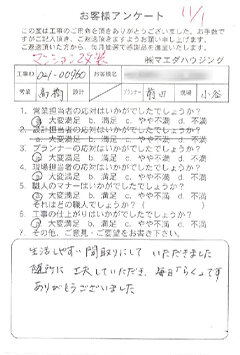 11/1
お客様アンケート
この度は工事のご用命を頂きありがとうございました。お手数ですがご記入頂き、ご返送頂きますようお願い申し上げます。
ご返送頂いた方から、毎月抽選で感謝品を進呈いたします。
マンション改装
㈱マエダハウジング
工事ID 021-00960 お客様名
営業 高樹 設計 プランナー 前田 現場 小谷
1. 営業担当者の応対はいかがでしたでしょうか？
a. 大変満足 b. 満足 c. やや不満 d. 不満
2. 設計担当者の応対はいかがでしたでしょうか？
a. 大変満足 b. 満足 c. やや不満 d. 不満
3. プランナーの応対はいかがでしたでしょうか？
a. 大変満足 b. 満足 c. やや不満 d. 不満
4. 現場担当者の応対はいかがでしたでしょうか？
a. 大変満足 b. 満足 c. やや不満 d. 不満
5. 職人のマナーはいかがでしたでしょうか？
a. 大変満足 b. 満足 c. やや不満 d. 不満
それはどの職人でしょうか？( )
6. 工事の仕上がりはいかがでしたでしょうか？
a. 大変満足 b. 満足 c. やや不満 d. 不満
7. その他、ご意見・ご要望をお書き下さい。
生活しやすい間取りにしていただきました
随所に工夫していただき、毎日「らく」です
ありがとうございました